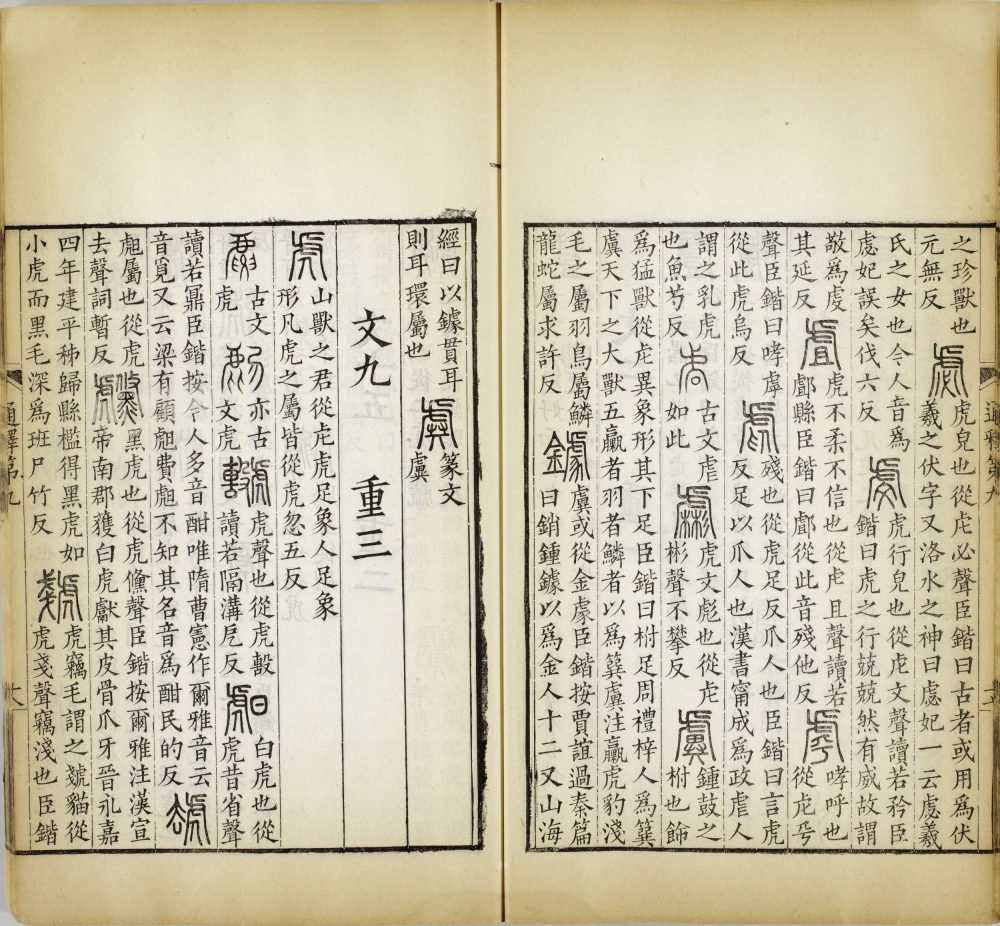 之珍獸也
元無反
虙虎皃也從虍必聲臣鍇曰古者或用爲伏
羲之伏字又洛水之神曰虙妃一云虙羲
氏之女也今人音爲
虙妃誤矣伐六反
虔虎行皃也從虍文聲讀若矜臣
鍇曰虎之行兢兢然有威故謂
敬爲虔
其延反
虘虎不柔不信也從虍且聲讀若
鄌縣臣鍇曰鄌從此音殘他反
虖哮呼也
從虍乎
聲臣鍇曰哮虖
從此虎烏反
虐殘也從虎足反爪人也臣鍇曰言虎
反足以爪人也漢書甯成爲政虐人
謂之乳虎
也魚芍反
古文虐
如此
虨虎文彪也從虍
彬聲不攀反
虡鍾鼓之
柎也飾
爲猛獸從虍異象形其下足臣鍇曰柎足周禮梓人爲簨
虡天下之大獸五臝者羽者鱗者以爲簨虡注臝虎豹淺
毛之屬羽鳥屬鱗
龍蛇屬求許反
鐻虡或從金豦臣鍇按賈誼過秦篇
曰銷鍾鐻以爲金人十二又山海
通釋第九
經曰以鐻貫耳
則耳環屬也
虡篆文
虡
文九 重三
虎山獸之君從虍虎足象人足象
形凡虎之屬皆從虎忽五反
古文
虎
亦古
文虎
虎聲也從虎㱾
讀若隔溝戹反
白虎也從
虎昔省聲
讀若鼏臣鍇按今人多音酣唯隋曹憲作爾雅音云
音覓又云梁有顧虪費虪不知其名音爲酣民的反
屬也從虎
去聲詞暫反
黑虎也從虎儵聲臣鍇按爾雅注漢宣
帝南郡獲白虎獻其皮骨爪牙晉永嘉
四年建平秭歸縣檻得黑虎如
小虎而黑毛深爲班尸竹反
虎竊毛謂之虦貓從
虎戔聲竊淺也臣鍇
通釋第九